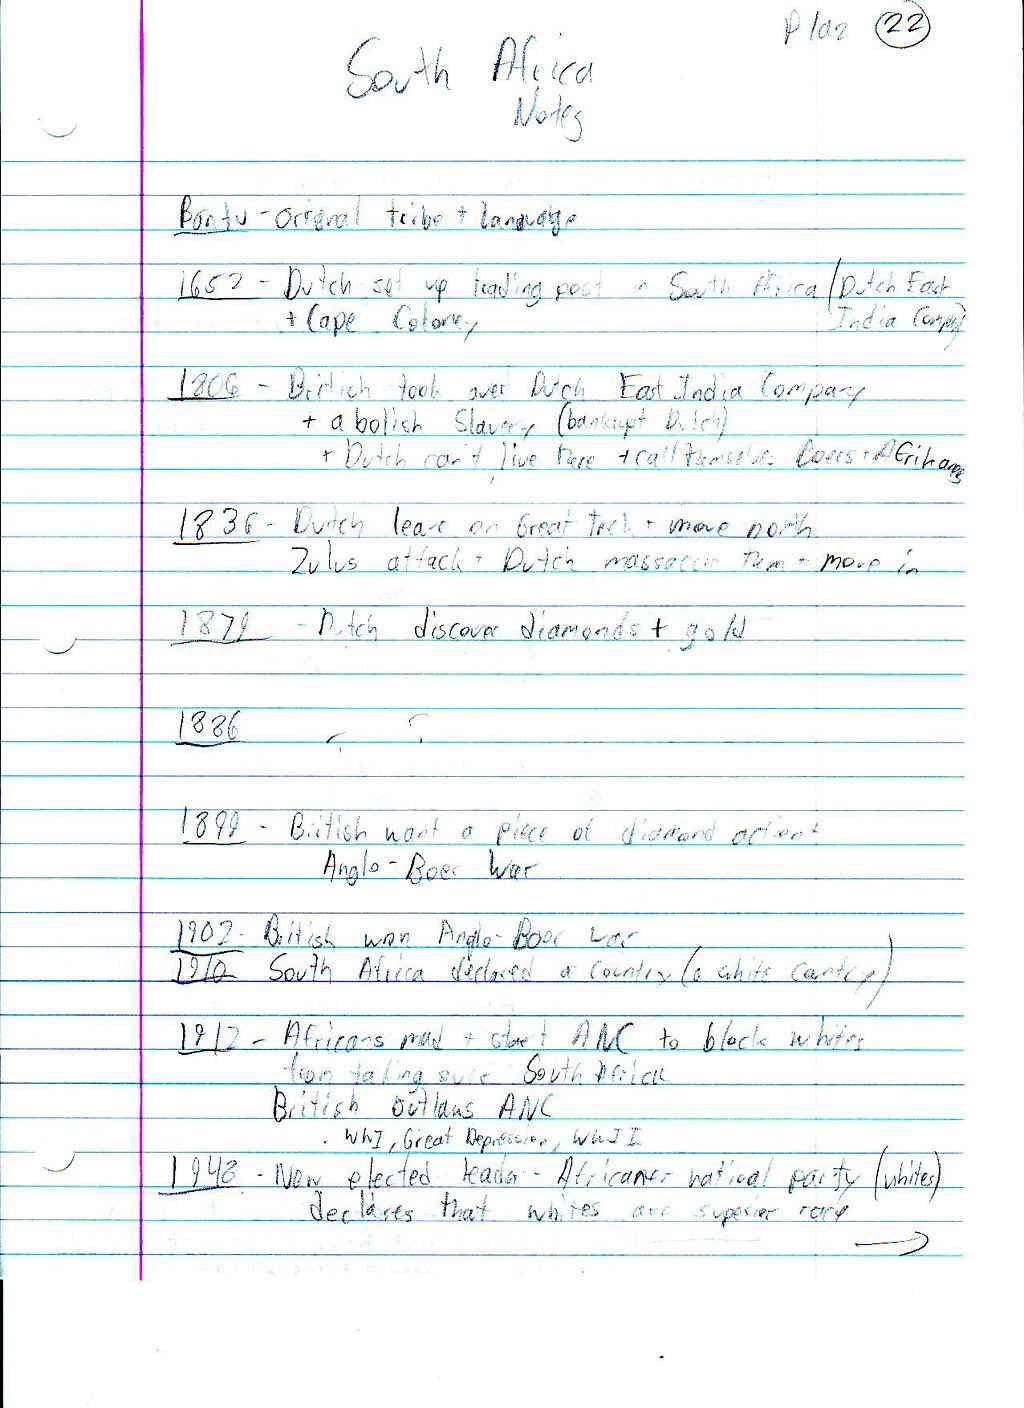 22
South Africa
Notes
Bantu - orignal tribe + language
1652 - Dutch set up trading post in South Africa (Dutch East
+ Cape Coloney India Company)
1806 - British took over Dutch East India Company
+ abolish Slavery (bankrupt Dutch)
+ Dutch can't live there + call themselves Boers + Afrikaners
1836 - Dutch leave on Great Trek + move north
Zulus attack + Dutch massacre them + move in
1879 - Dutch discover diamonds + gold
1886 ?
1899 - British want a piece of diamond action +
Anglo-Boer War
1902 - British won Anglo-Boer war
1910 South Africa declared a country (a white country)
1912 - Africans mad + start ANC to block whites
from taking over South Africa
British outlaws ANC
. WWI, Great Depression, WWII
1948 - Now elected leader - Africaner national party (whites)
declares that whites are superior race